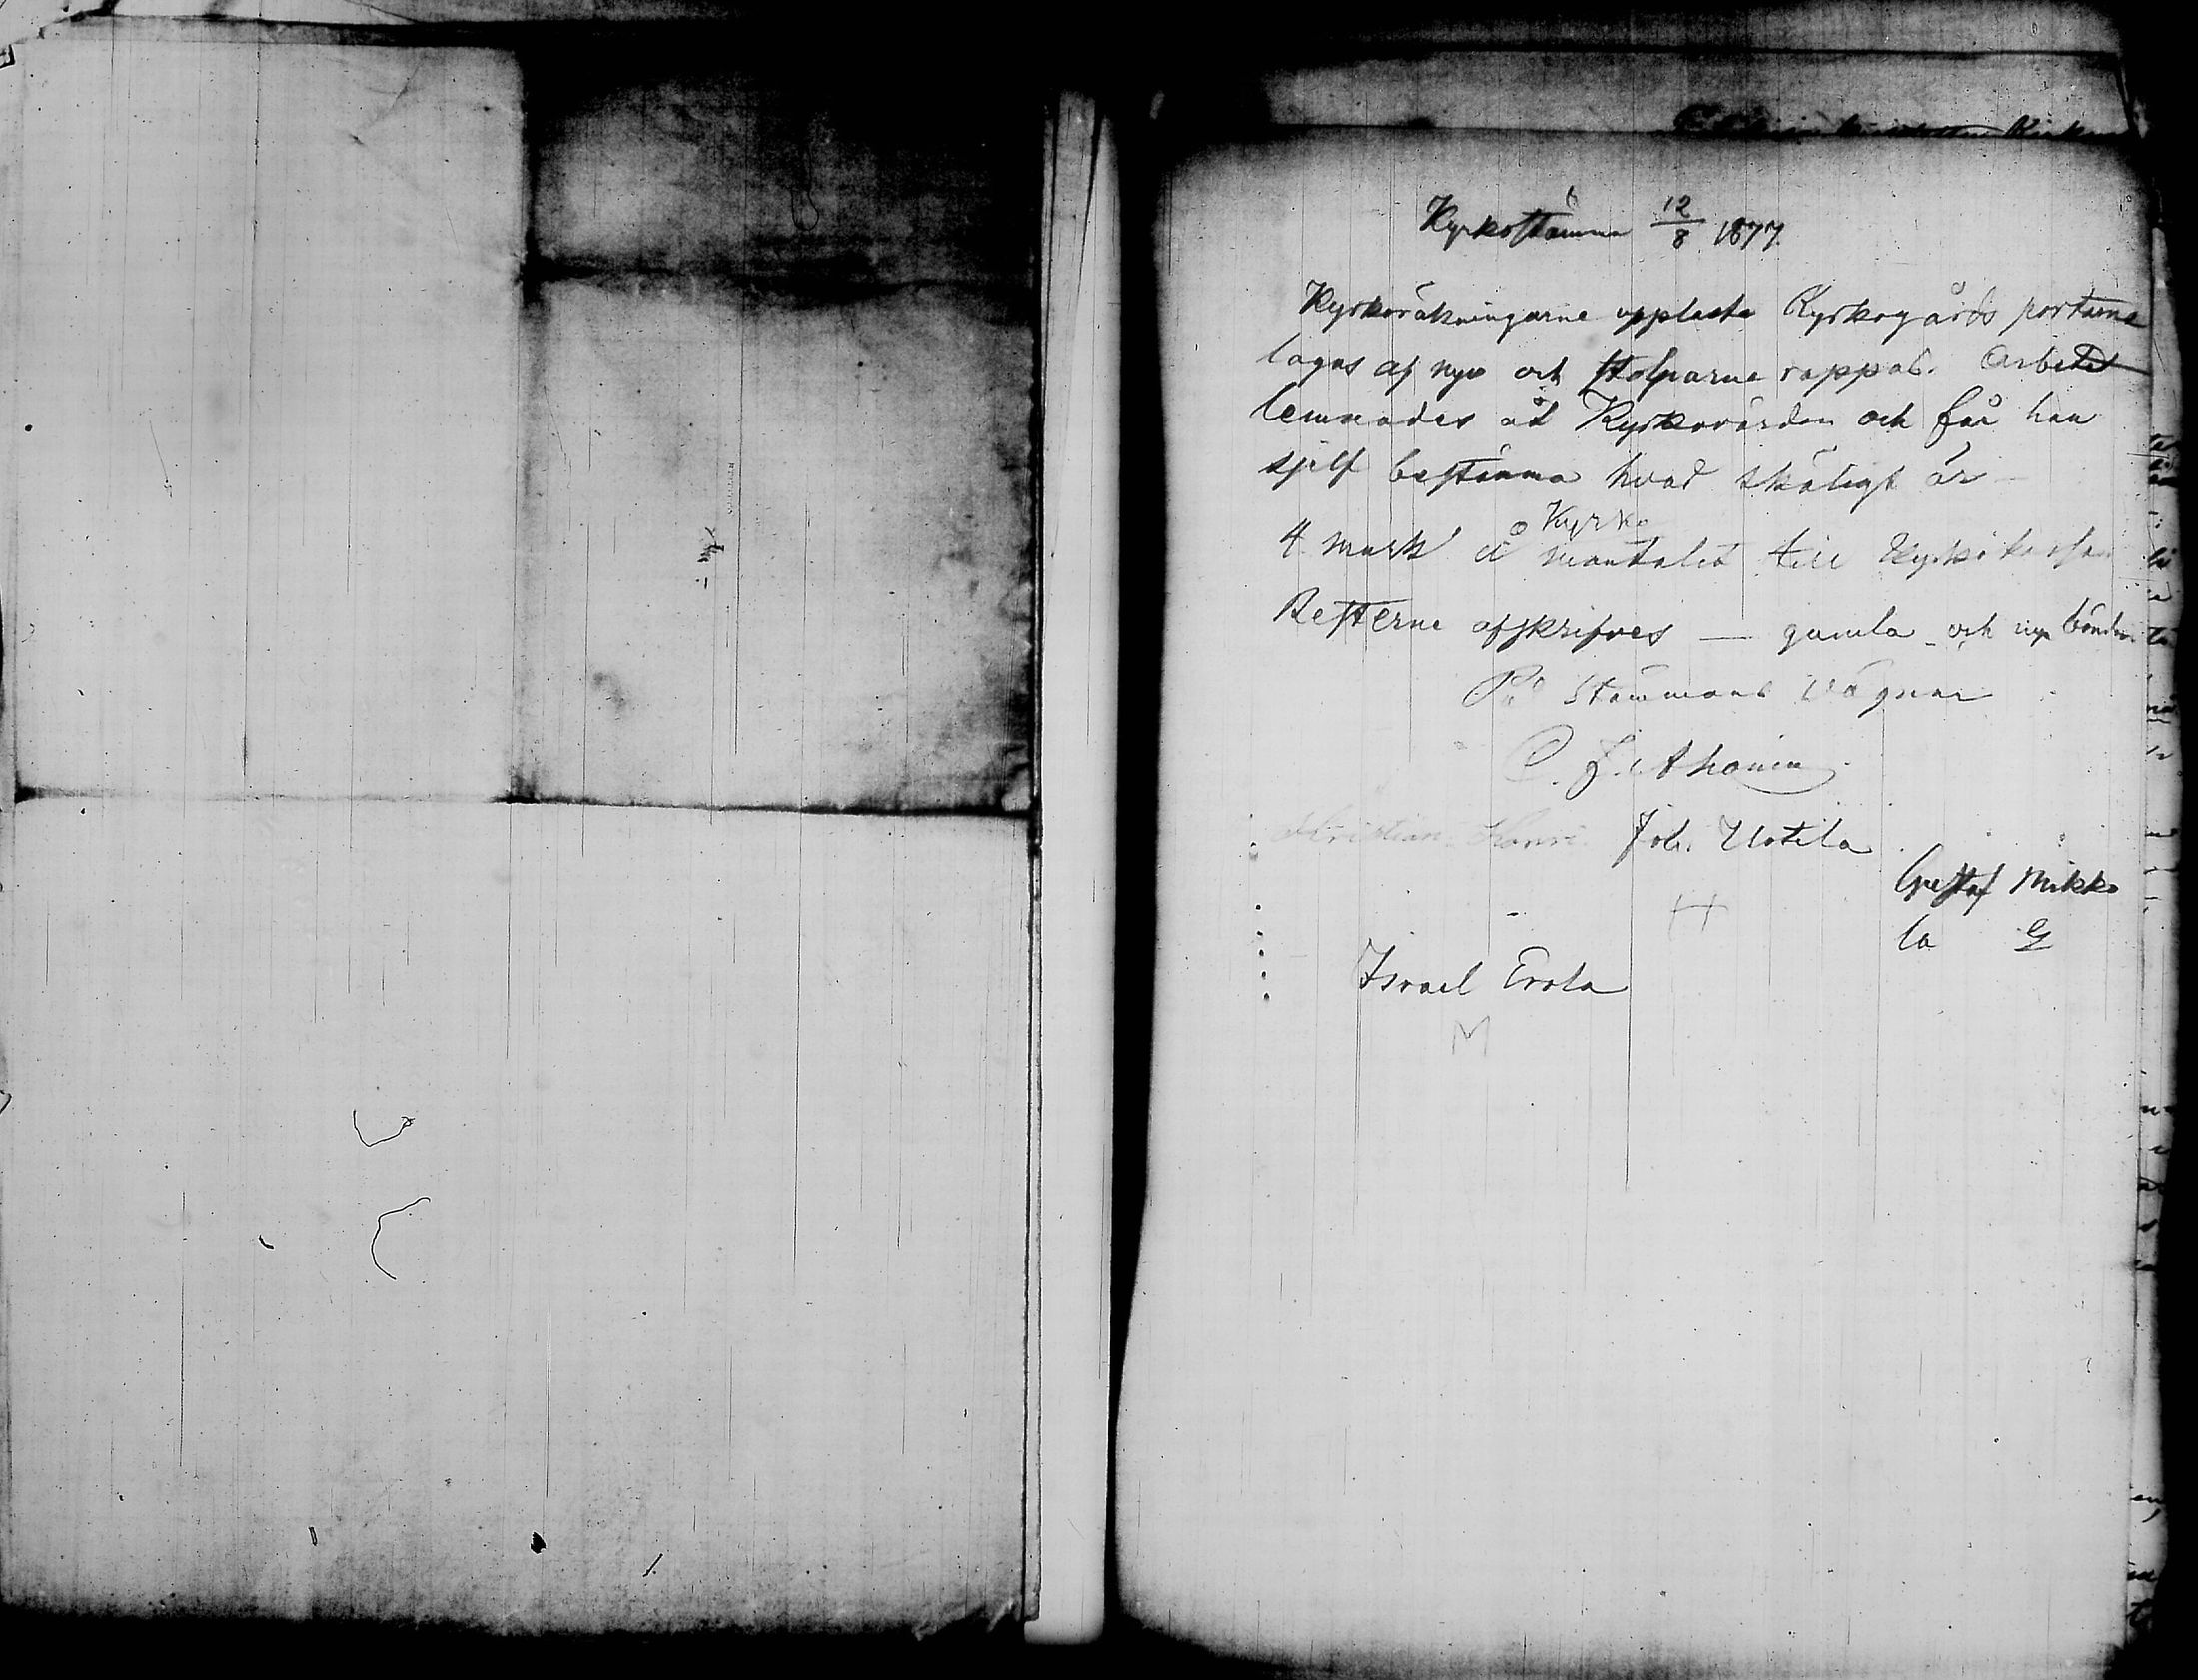 Kyrkostämma 12/8 1877
Kyrkoräkningarne upplästa Kyrkogårds portarne
lagas af nyo och stolparne rappas. Arbetet
lemnades åt Kyrkovärden och får han
sjelf bestämma hvad skäligt är
Kyrko
4 mark å mantalet till Kyrkokassan
Resterne afskrifves — gamla och nya bönder
På Stämmans vägnar
Kristian
Joh. Uotila
Gustaf Mikko
la G
H
Israel Erola
M